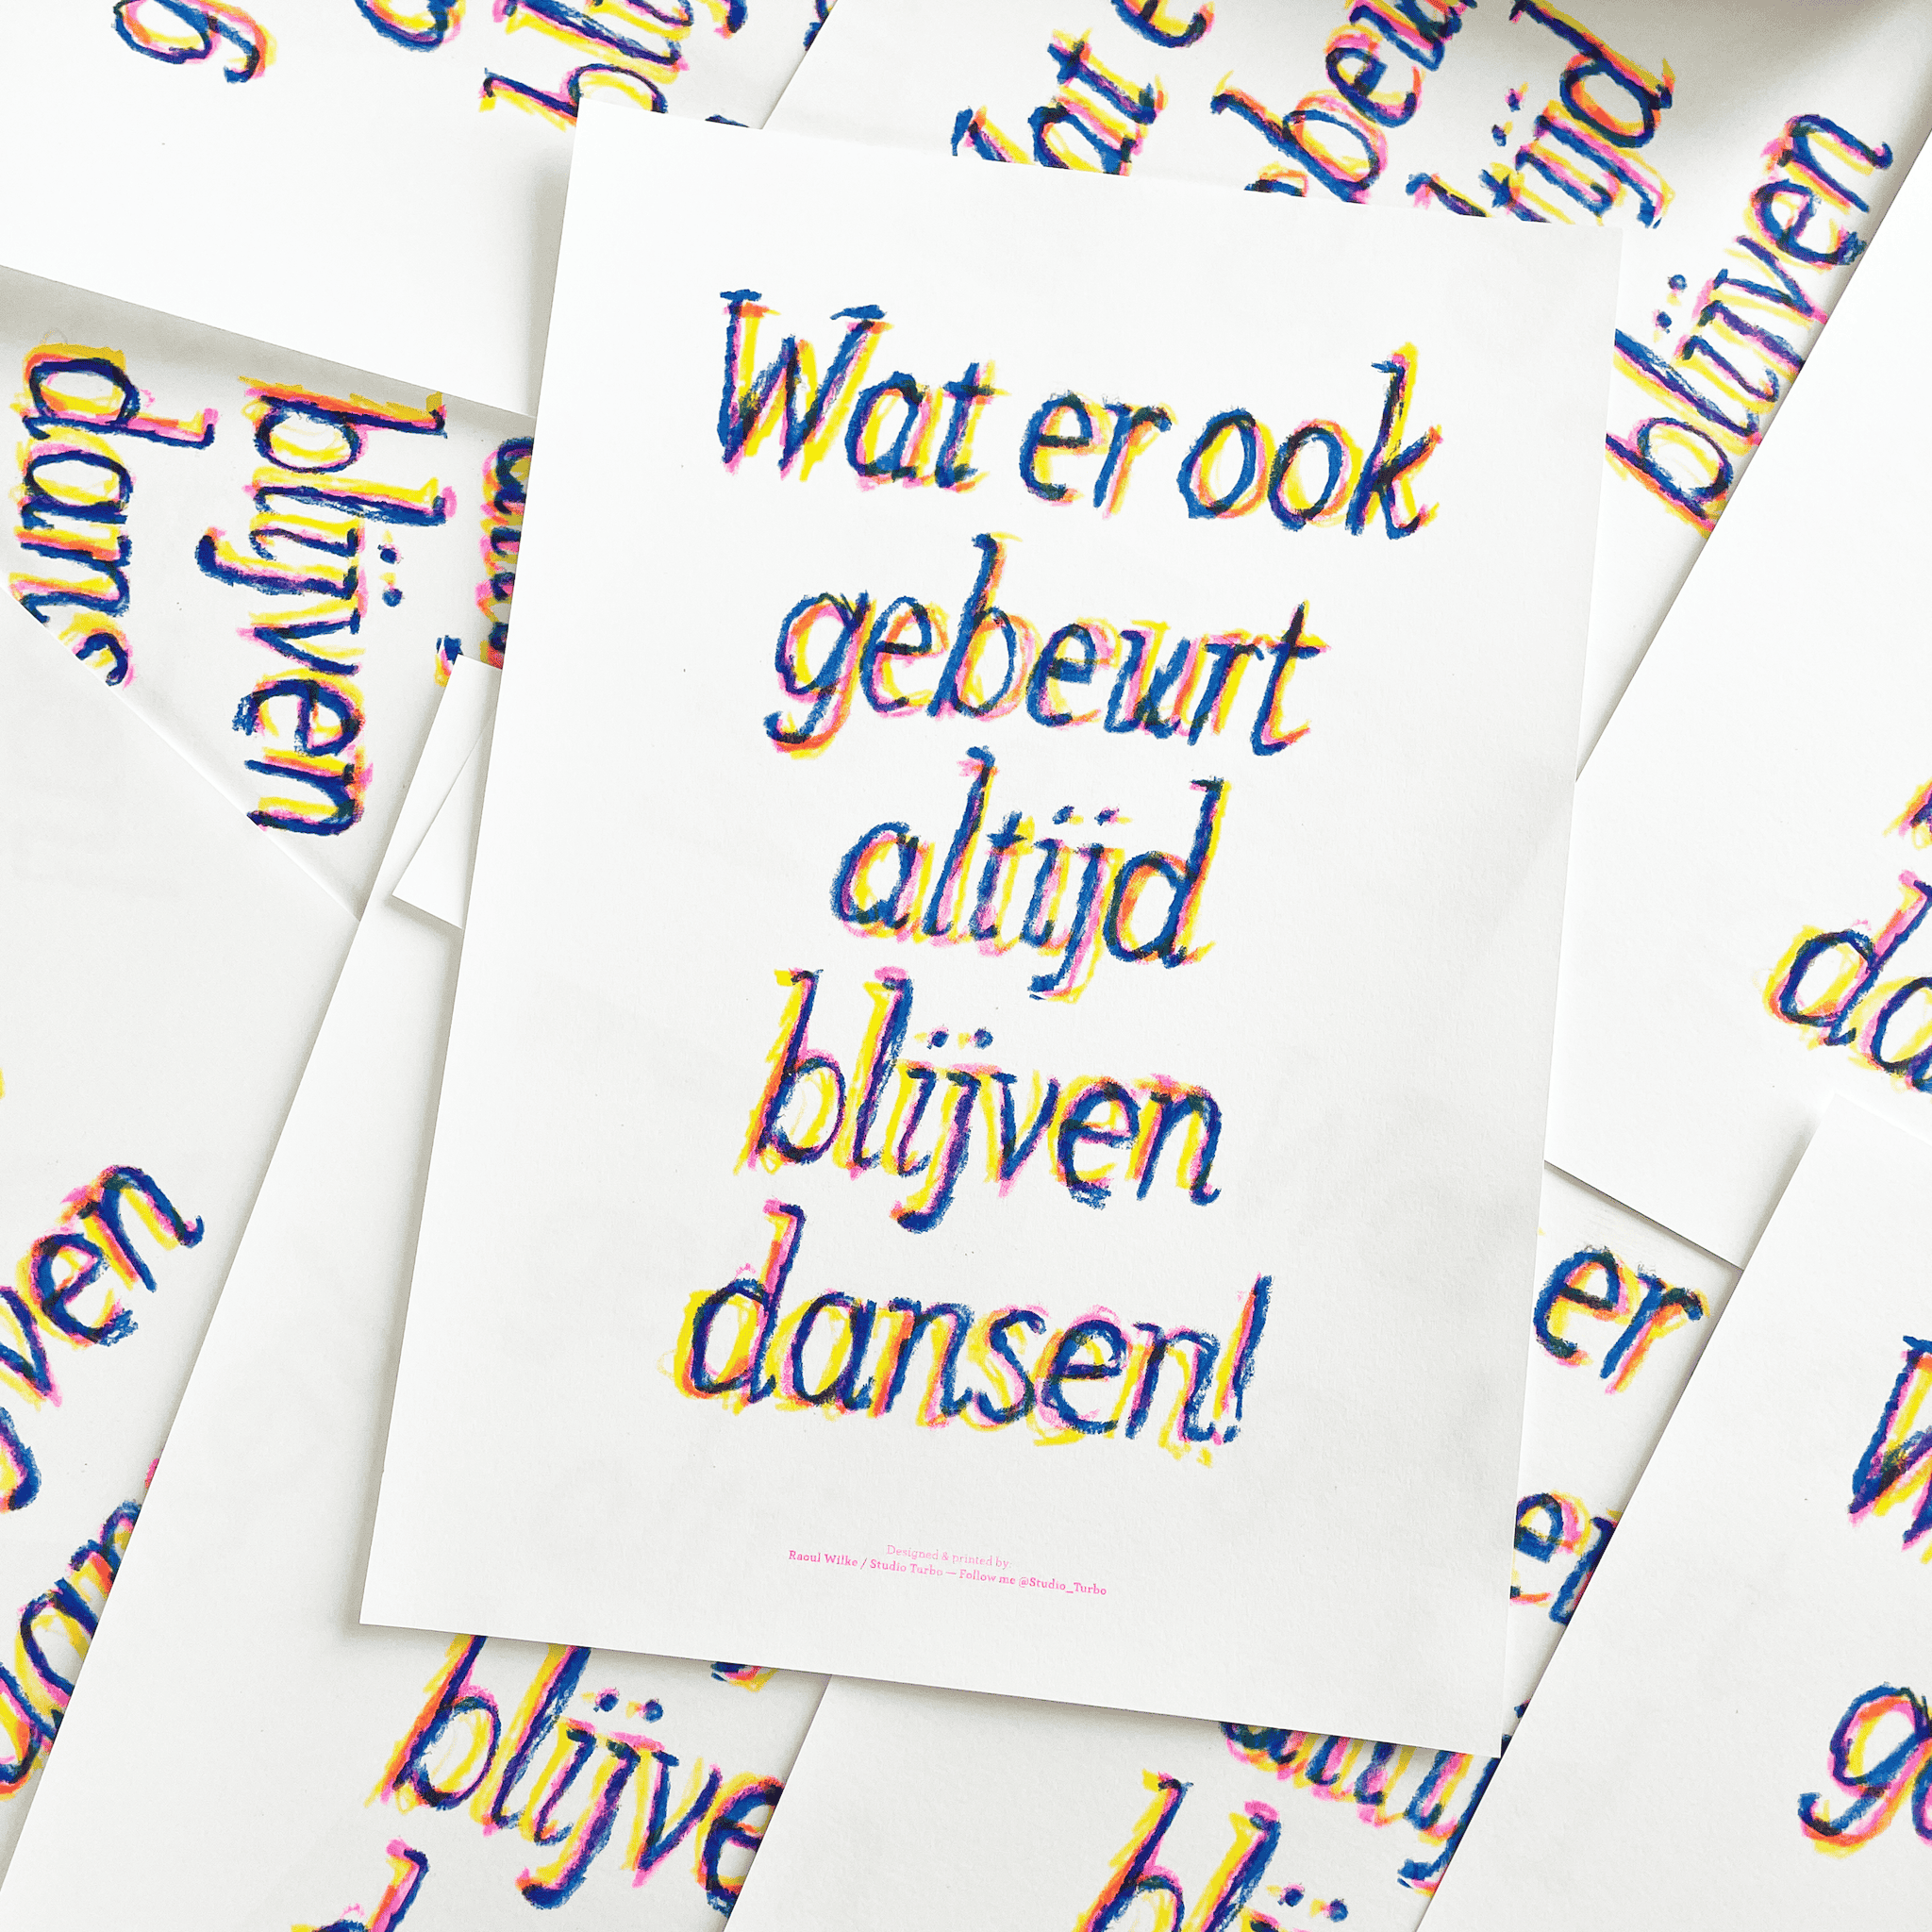 Wat er ook
gebeurt
altijd
blijven
dansen!
Designed & printed by:
Raoul Wilke / Studio Turbo — Follow me @Studio_Turbo
blijven
dans
blijven
at e
beu
tijd
blijven
ven
da
er
blijve